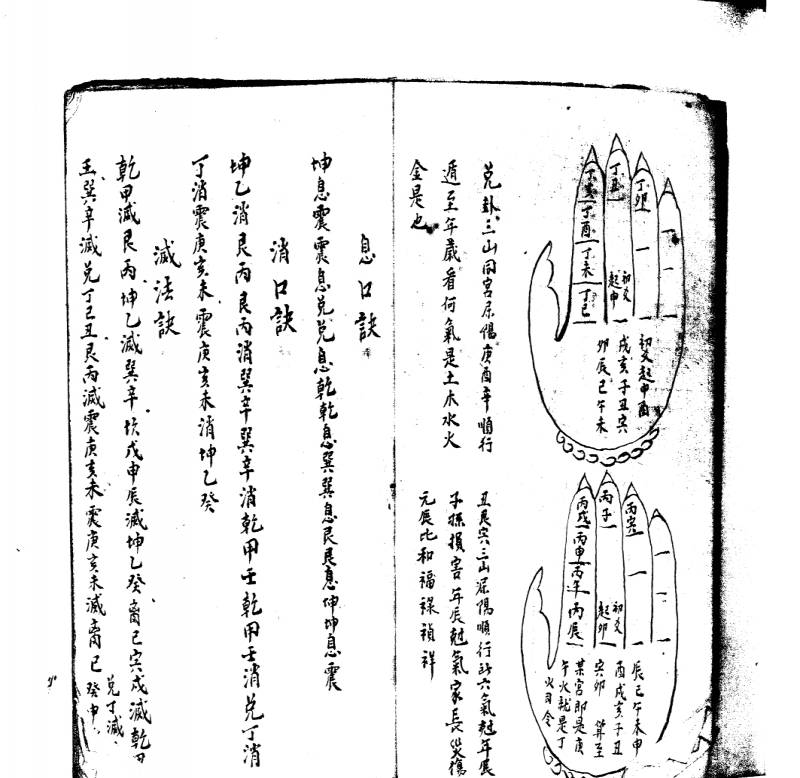 丁卯
丁丑
丁亥
丁酉
丁未
丁巳
初爻
起申
初爻起申酉
戌亥子丑寅
卯辰巳午未
兌卦三山同宮屬陽庚酉辛順行
遁至年歲看何氣是土木水火
金是也
丙寅
丙子
丙戌
丙申
丙午
丙辰
初爻
起卯
辰巳午未申
酉戌亥子丑
寅卯 算至
某宮即是庚
午火就是丁
火司令
丑艮寅三山屬陽順行 六氣尅年辰
子孫損害年辰尅氣家長災
元辰比和福祿禎祥
息口訣
坤息震震息兌兌息乾乾息巽巽息艮艮息坤坤息震
消口訣
坤乙消艮丙艮丙消巽辛巽辛消乾甲壬乾甲壬消兌丁消
丁消震庚亥未震庚亥未消坤乙癸
滅法訣
乾甲滅艮丙坤乙滅巽辛坎戊申辰滅坤乙癸离己寅戌滅乾甲
壬巽辛滅兌丁己丑艮丙滅震庚亥未震庚亥未滅离己
癸申
兌丁滅